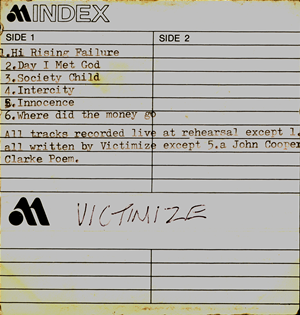 INDEX
SIDE 1 SIDE 2
1.Hi Rising Failure
2.Day I Met God
3.Society Child
4.Intercity
5.Innocence
6.Where did the money go
All tracks recorded live at rehearsal except 1.
all written by Victimize except 5.a John Cooper
Clarke Poem.
VICTIMIZE